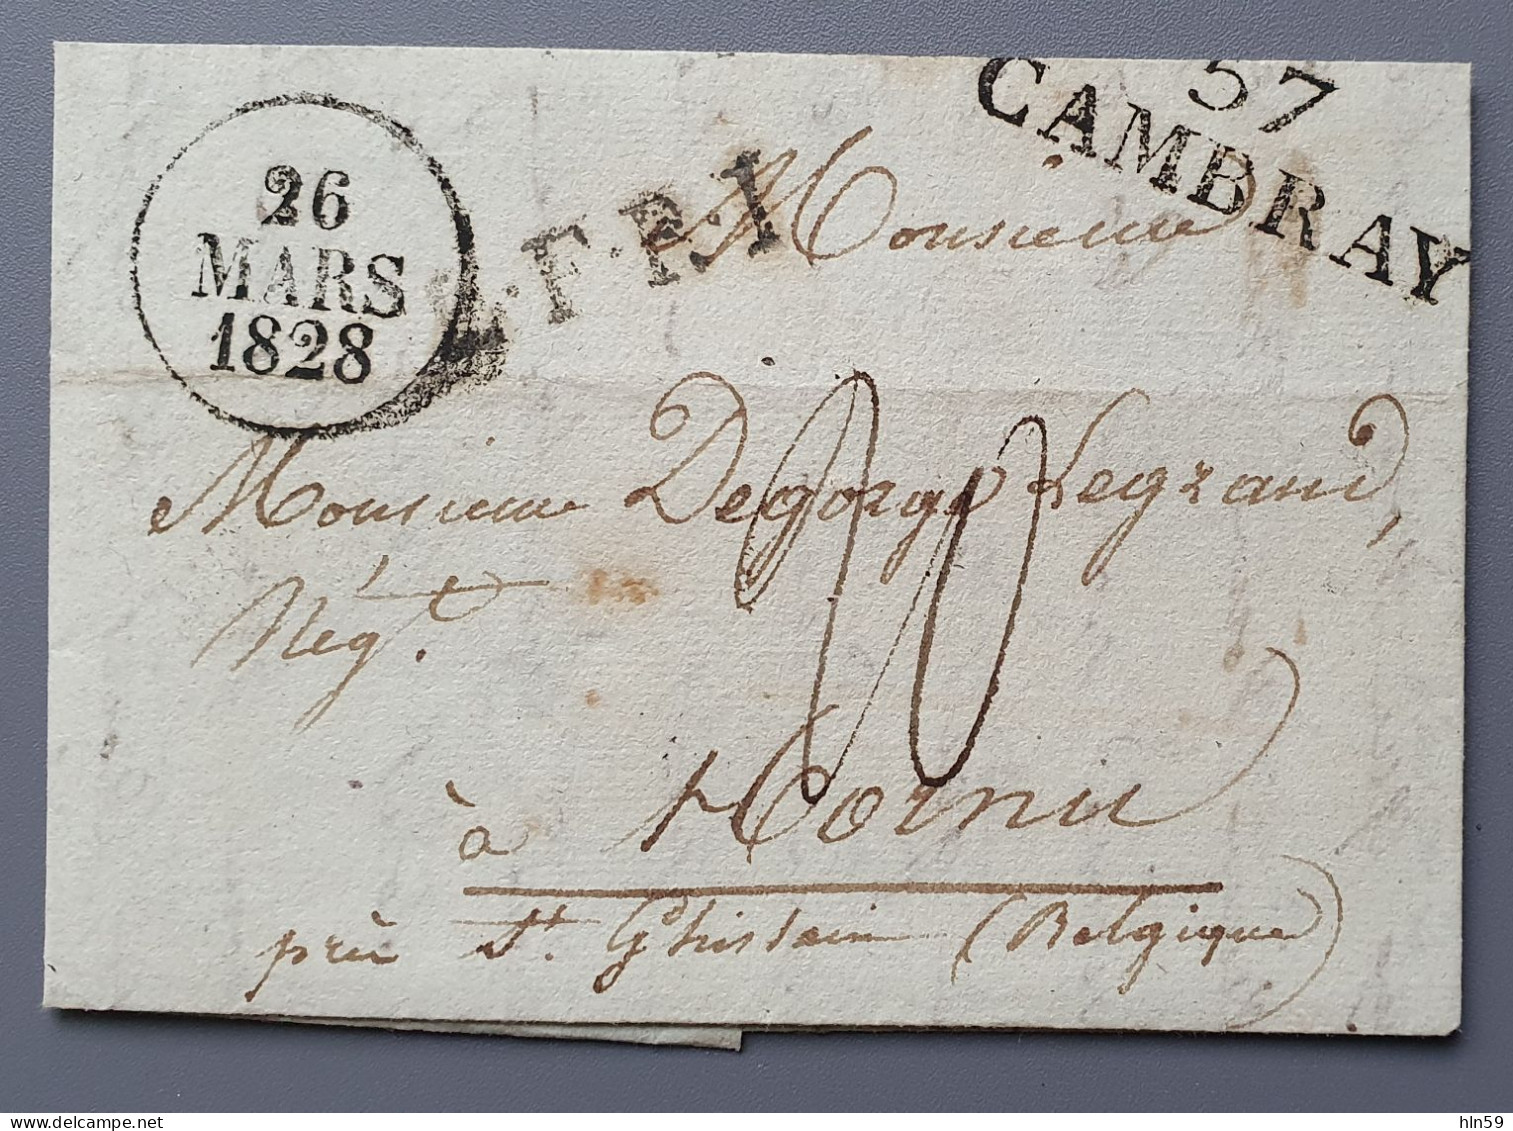 57
CAMBRAY
26
MARS
1828
L.F.R.1
Monsieur
Monsieur Degorge Legrand,
Nég.t
20
à Hornu
près St. Ghislain (Belgique)
hln59